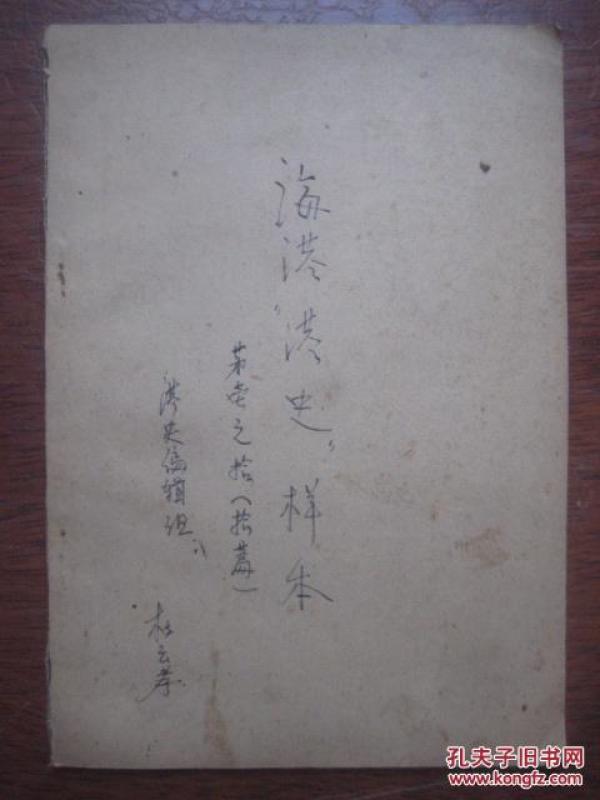 海港“港史”样本
第壹之拾（拾篇）
港史编辑组
杜云
孔夫子旧书网
www.kongfz.com